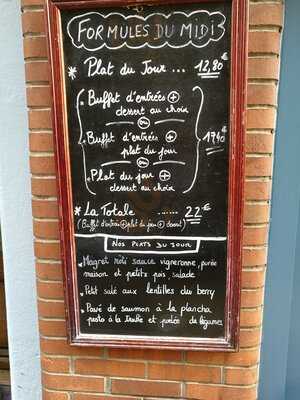 FORMULES DU MIDI
* Plat du Jour ... 12,80 €
• Buffet d'entrées +
dessert au choix
ou
• Buffet d'entrées +
plat du jour
ou
• Plat du jour +
dessert au choix
17,90 €
* La Totale ....... 22 €
(Buffet d'entrées + plat du jour + dessert)
NOS PLATS DU JOUR
• Magret rôti sauce vigneronne, purée
maison et petits pois salade
• Petit salé aux lentilles du berry
• Pavé de saumon à la plancha
pesto à la et poêlée de légumes